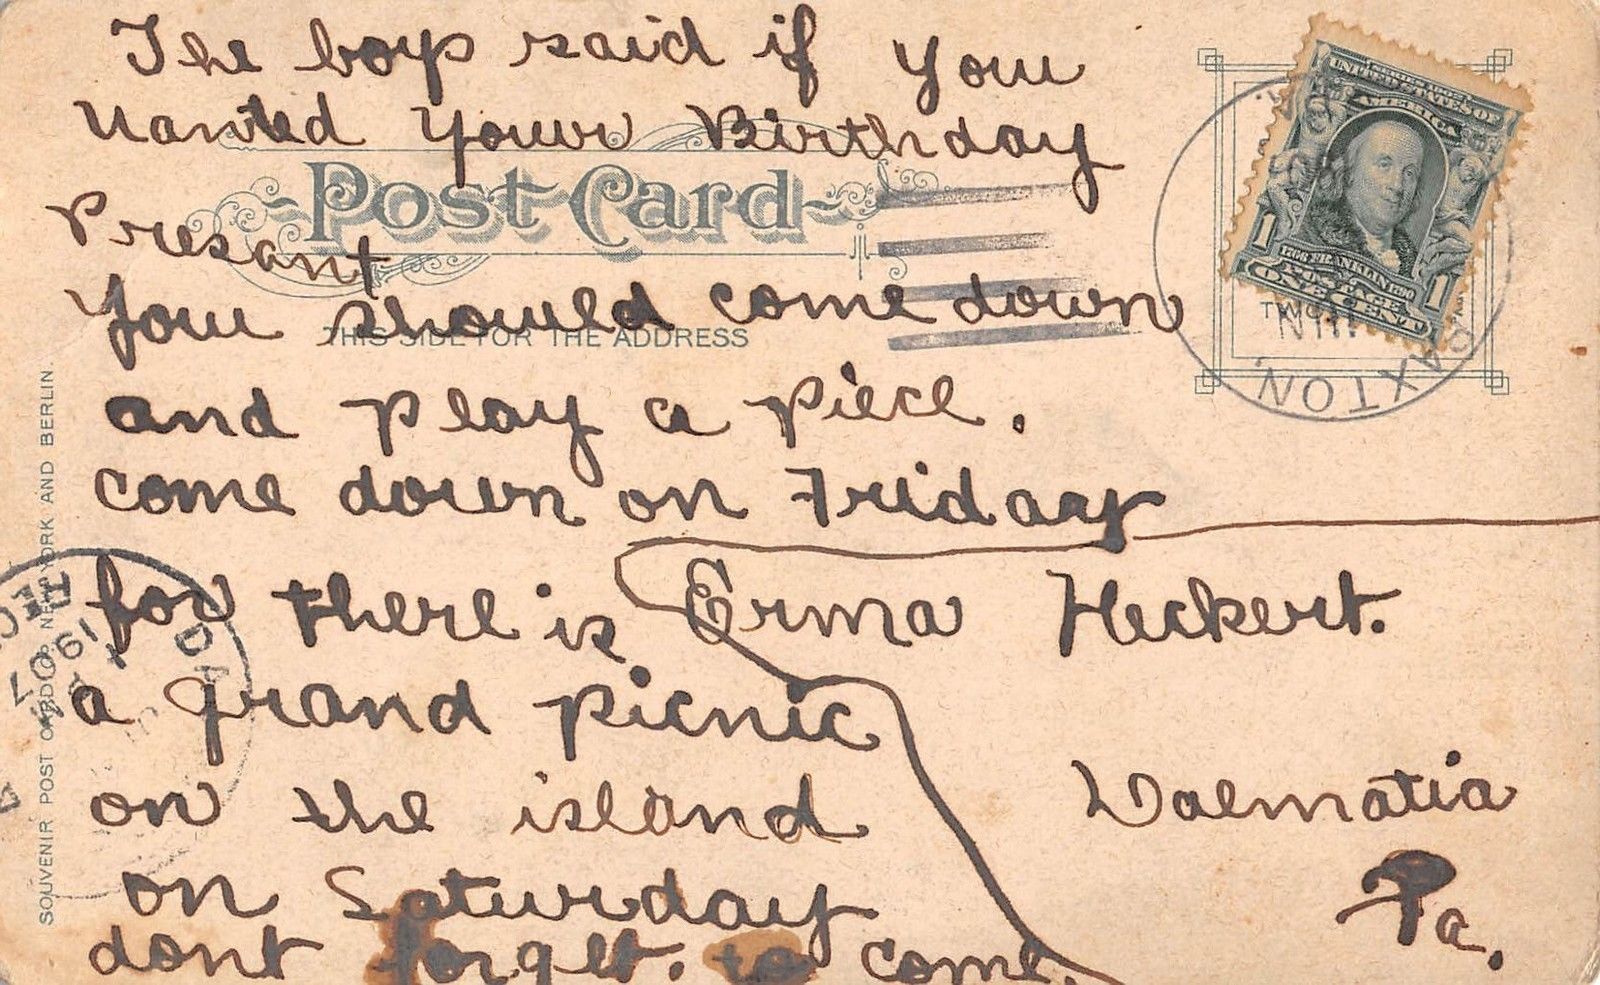 The boys said if you
wanted your Birthday
Presant
you should come down
and play a piece.
come down on Friday
for there is
a grand picnic
on the island
on Saturday
dont forget. to come.
Erma Heckert.
Dalmatia
Pa.
Post Card
THIS SIDE FOR THE ADDRESS
SOUVENIR POST CARD CO. NEW YORK AND BERLIN.
SERIES 1902
UNITED STATES OF
AMERICA
1706 FRANKLIN 1790
1 POSTAGE 1
ONE CENT
PAXTON